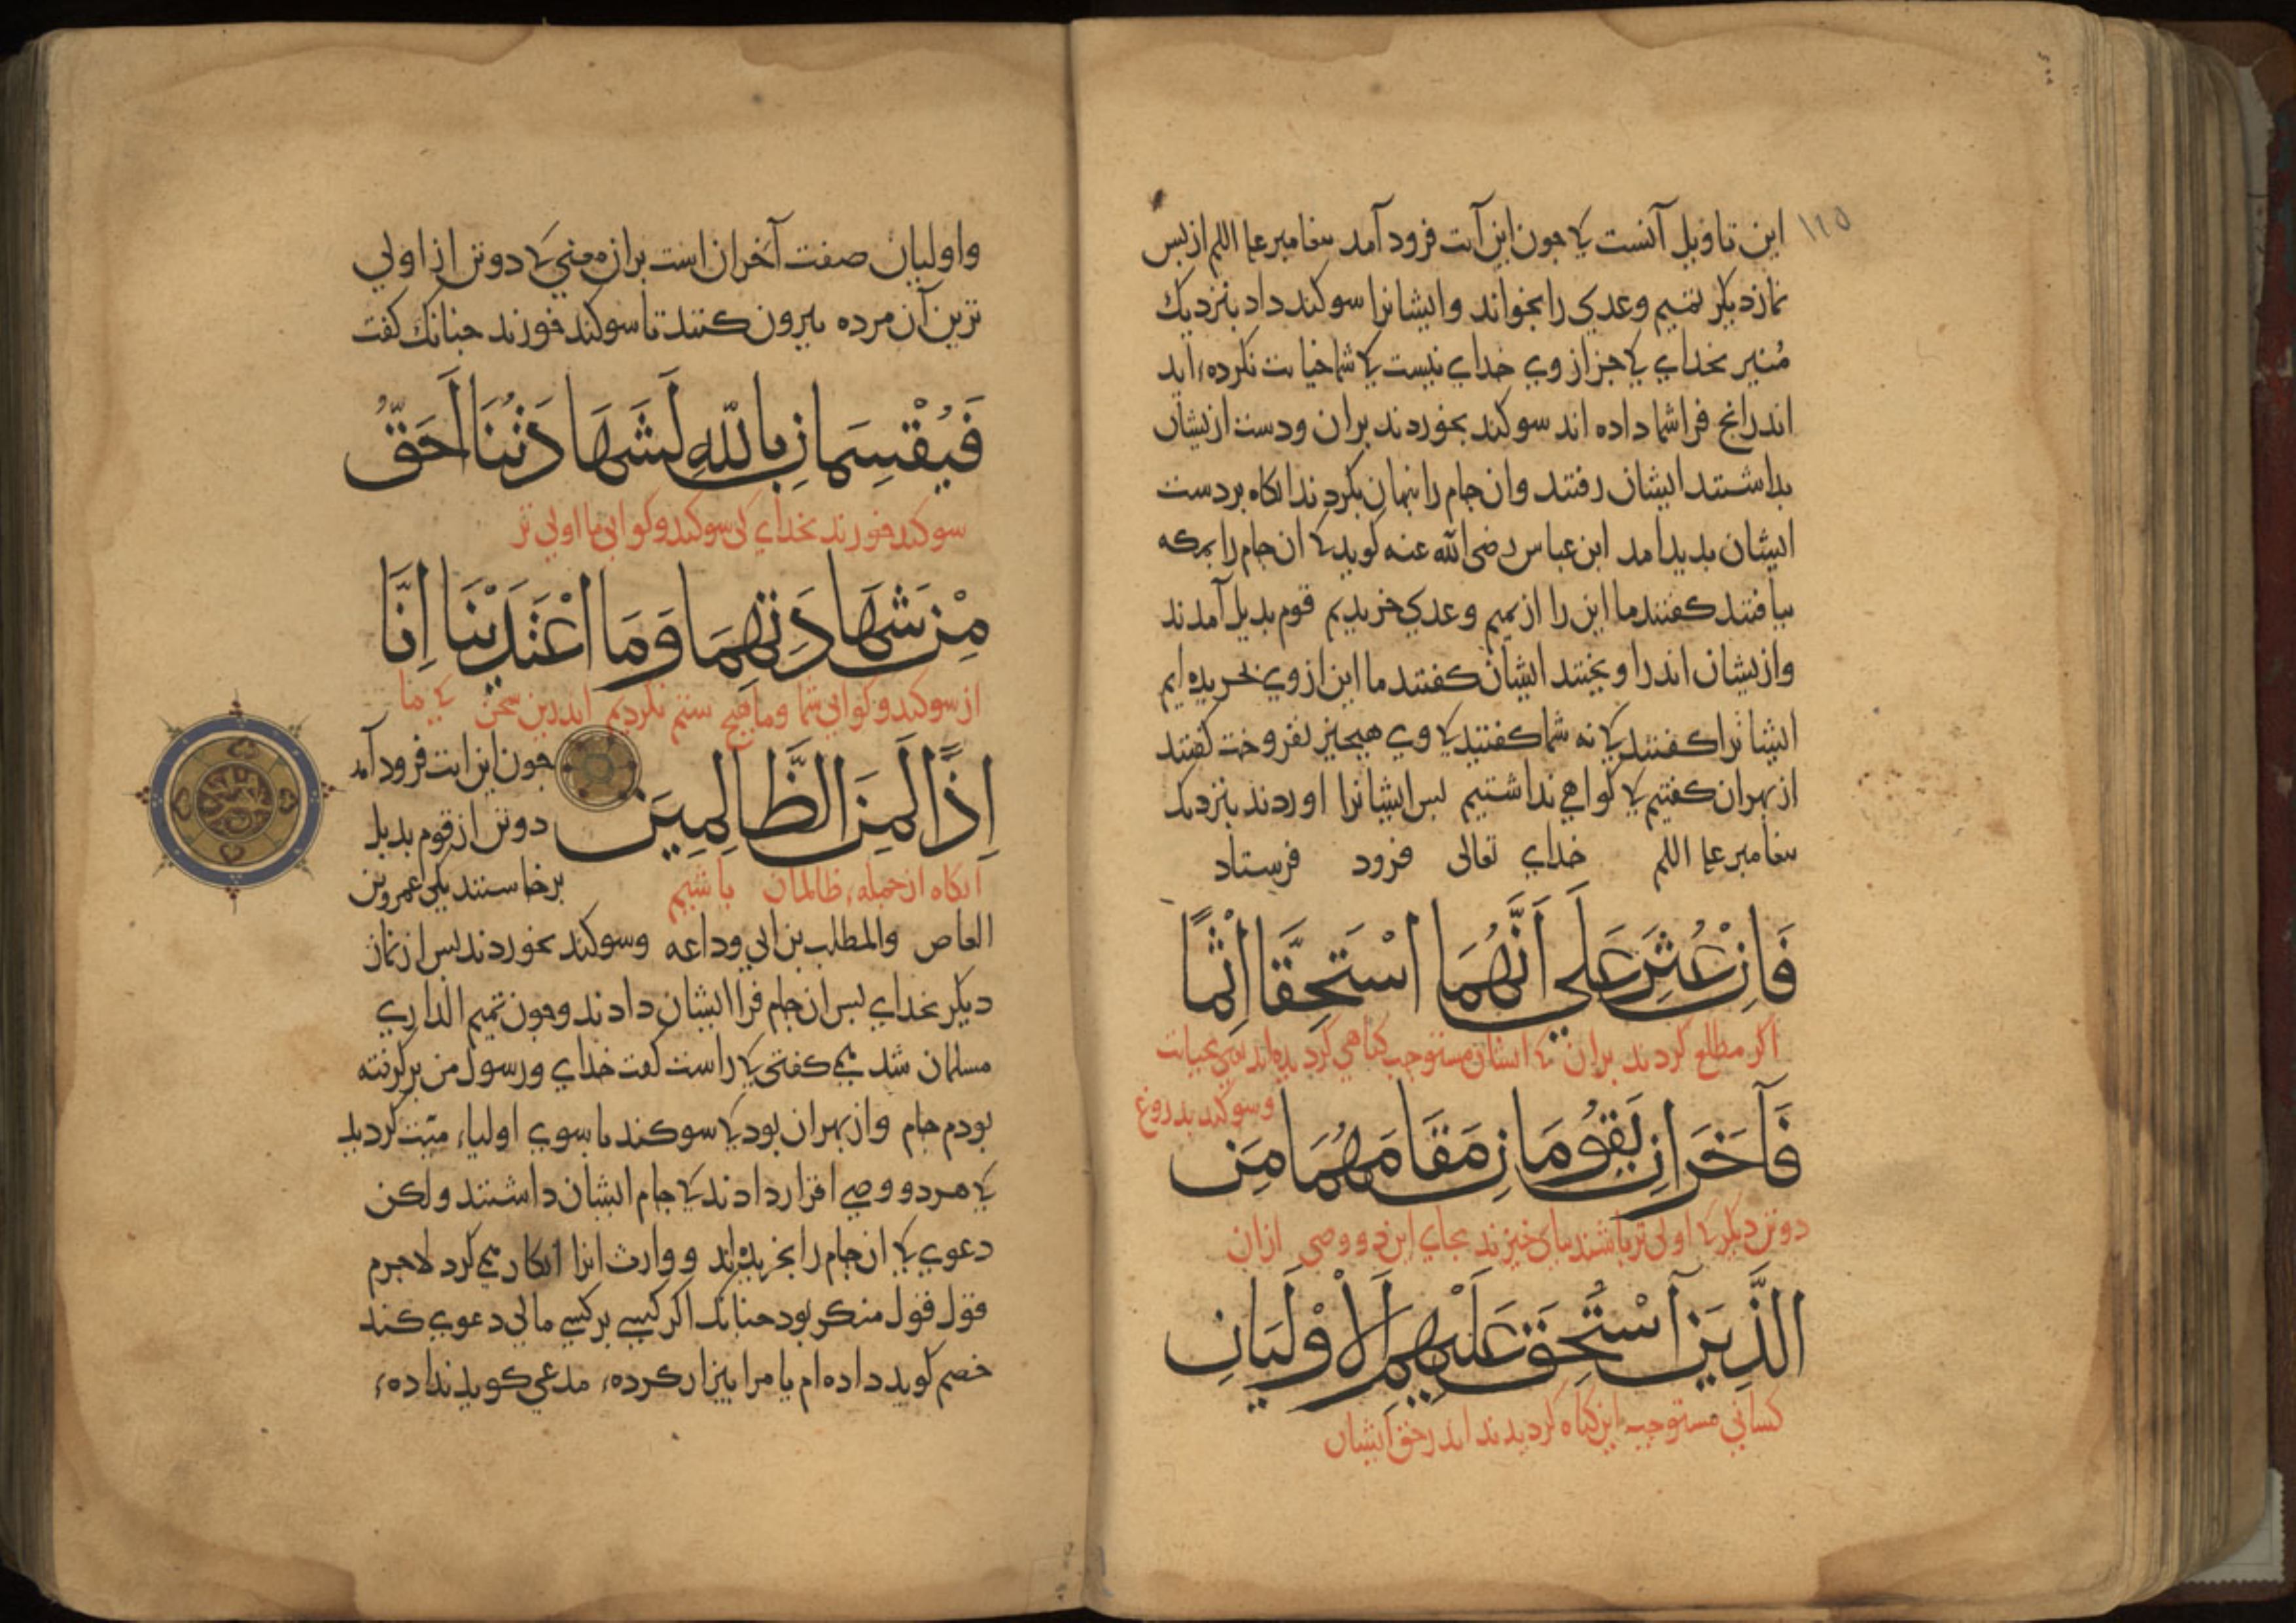 ١١٥
این تاویل آنست کی جون این آیت فرود آمد بیغامبر علیه السلم از بس
نماز دیکر تمیم و عدی را بخواند و ایشانرا سوکند داد بنزدیک
منبر بخدای کی جز از وی خدای نیست کی شما خیانت نکرده‌اید
اندرانج فرا شما داده اند سوکند بخوردند بران و دست ازیشان
بداشتند ایشان رفتند و ان جام را بنهان بکردند انکاه بر دست
ایشان بدید امد ابن عباس رضی الله عنه کوید کی ان جام را بمکه
بیافتند کفتند ما این را از تمیم و عدی خریدیم قوم بدیل آمدند
و ازیشان اندر اویختند ایشان کفتند ما این از وی بخریده ایم
ایشانرا کفتند کی نه شما کفتید کی وی هیجیز نفروخت کفتند
از بهر ان کفتیم کی کواهی نداشتیم بس ایشانرا اوردند بنزدیک
بیغامبر علیه السلم خدای تعالی فرود فرستاد
فَاِنْ عُثِرَ عَلَي اَنَّهُمَا اسْتَحَقَّا اِثْمًا
اکر مطلع کردند بران کی ایشان مستوجب کناهی کردیده‌اند یعنی بخیانت
و سوکند بدروغ
فَآخَرَانِ يَقُومَانِ مَقَامَهُمَا مِنَ
دو تن دیکر کی اولی تر باشند بای خیزند بجای این دو وصی ازان
الَّذِينَ اسْتُحِقَّ عَلَيْهِمُ الْأَوْلَيَانِ
کسانی مستوجب این کناه کردیدند اندر حق ایشان
و اولیان صفت آخران است بران معنی کی دو تن از اولی
ترین آن مرده بیرون کنند تا سوکند خورند جنانک کفت
فَيُقْسِمَانِ بِاللّهِ لَشَهَادَتُنَا أَحَقُّ
سوکند خورند بخدای کی سوکند و کوایی ما اولی تر
مِنْ شَهَادَتِهِمَا وَمَا اعْتَدَيْنَا اِنَّا
از سوکند و کوایی شما و ما هیج ستم نکردیم اندرین سخن کی ما
اِذًا لَمِنَ الظَّالِمِيَن
جون این ایت فرود آمد
دو تن از قوم بدیل
انکاه از جمله ظالمان باشیم
برخاستند یکی عمرو بن
العاص و المطلب بن ابی وداعه و سوکند بخوردند بس از نماز
دیکر بخدای بس ان جام فرا ایشان دادند و جون تمیم الداری
مسلمان شد می کفتی کی راست کفت خدای و رسول من برکرفته
بودم جام و از بهر ان بود کی سوکند با سوی اولیاء میت کردید
کی هر دو وصی اقرار دادند کی جام ایشان داشتند و لکن
دعوی کی ان جام را بخریده‌اند و وارث انرا انکار می کرد لاجرم
قول قول منکر بود جنانک اکر کسی بر کسی مالی دعوی کند
خصم کوید داده ام یا مرا بیزار کرده، مدعی کوید نداده،